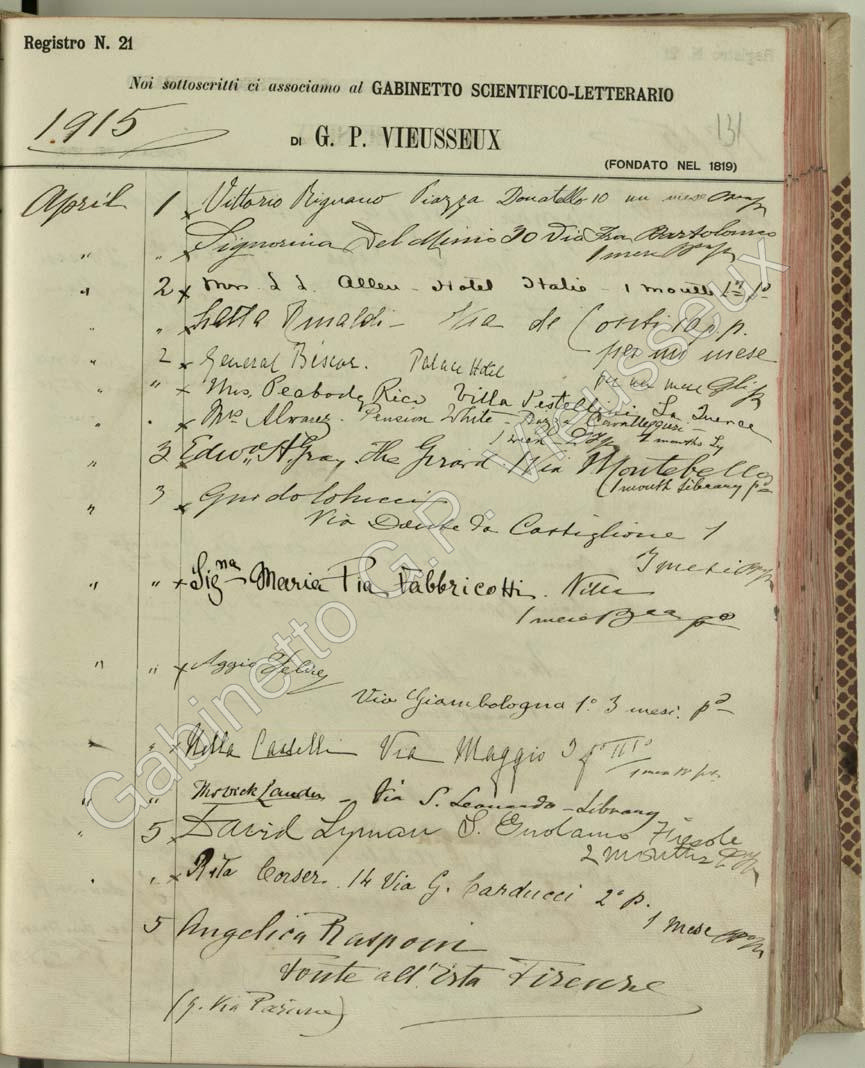 Registro N. 21
Noi sottoscritti ci associamo al GABINETTO SCIENTIFICO-LETTERARIO
1915
131
DI G. P. VIEUSSEUX
(FONDATO NEL 1819)
April 1 x Vittorio Rignano Piazza Donatello 10 un mese
" " x Signorina Del Minio 30 Via Fra Bartolomeo
1 mese
" 2 x Mrs L L Allen - Hotel Italie - 1 month
" " x Rinaldi - Via de Conti
per un mese
" 2 x General Palace Hotel
per un mese
" " x Mrs. Peabody Rice Villa Pestellini La Querce
x Mrs Alvarez. Pension White - Piazza Cavalleggeri
1 week 1 months
" 3 x Edwd A. Gray. The Girard Via Montebello
1 month Library pd
" 3 x Guido
Via Dante da Castiglione 1
3 mesi
" " x Signa Maria Pia Fabbricotti. Villa
1 mese
" " x Aggio Felice
Via Giambologna 1° 3 mesi. pd
" " x Nella Casselli Via Maggio
" " Via S. Leonardo - Library
" 5 x David Lyman S. Girolamo Fiesole
2 months
" " x Rita Corser. 14 Via G. Carducci 2° p.
1 mese
5 Angelica Rasponi
Fonte all'Erta Firenze
Gabinetto G.P. Vieusseux